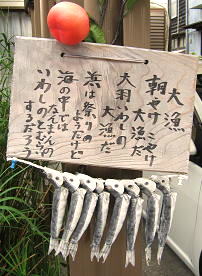 大漁
朝やけこやけだ
大漁だ
大羽いわしの
大漁だ
浜は祭りの
ようだけど
海の中では
なんまんの
いわしのとむらい
するだろう